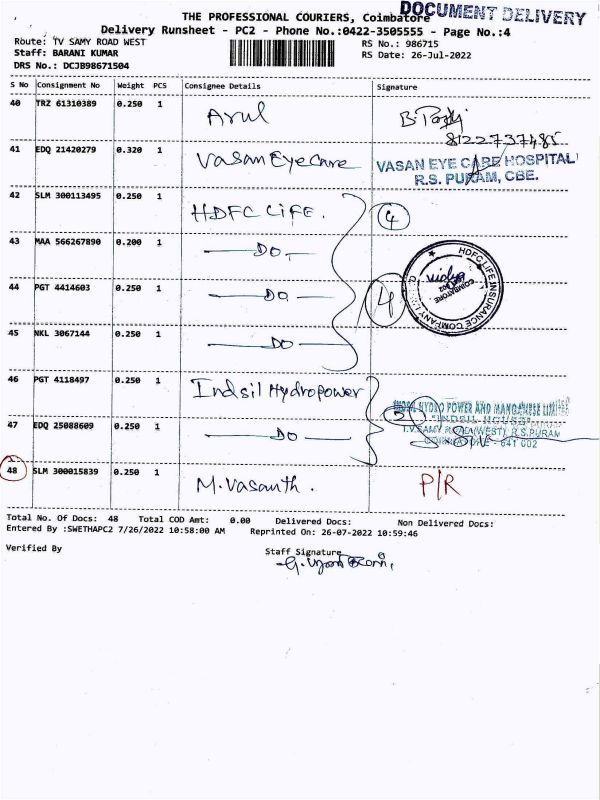 DOCUMENT DELIVERY
THE PROFESSIONAL COURIERS, Coimbatore
Delivery Runsheet - PC2 - Phone No.:0422-3505555 - Page No.:4
Route: TV SAMY ROAD WEST
RS No.: 986715
Staff: BARANI KUMAR
RS Date: 26-Jul-2022
DRS No.: DCJB98671504
S No Consignment No Weight PCS Consignee Details Signature
40 TRZ 61310389 0.250 1 Arul
8122737485
41 EDQ 21420279 0.320 1 Vasan Eye Care VASAN EYE CARE HOSPITAL
R.S. PURAM, CBE.
42 SLM 300113495 0.250 1 HDFC LIFE. 4
43 MAA 566267890 0.200 1 DO
44 PGT 4414603 0.250 1 DO 4
HDFC LIFE INSURANCE COMPANY
COIMBATORE
45 NKL 3067144 0.250 1 DO
46 PGT 4118497 0.250 1 Indsil Hydropower
INDSIL HYDRO POWER AND MANGANESE LIMITED
2 "INDSIL HOUSE"
47 EDQ 25088609 0.250 1 DO T.V.SAMY ROAD (WEST), R.S.PURAM
COIMBATORE - 641 002
48 SLM 300015839 0.250 1 M. Vasanth. P/R
Total No. Of Docs: 48 Total COD Amt: 0.00 Delivered Docs: Non Delivered Docs:
Entered By :SWETHAPC2 7/26/2022 10:58:00 AM Reprinted On: 26-07-2022 10:59:46
Verified By Staff Signature